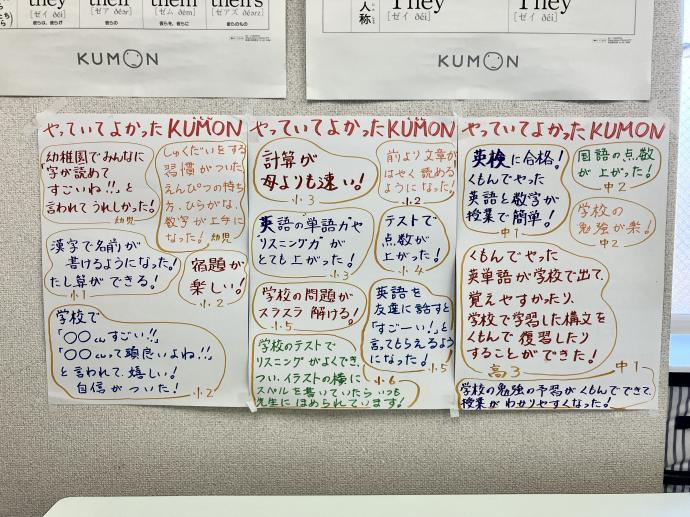 they
their
them
theirs
[ゼイ ðéi]
[ゼア ðéər]
[ゼム ðém]
[ゼアズ ðéərz]
彼らは、彼らが
彼らの
彼らを、彼らに
彼らのもの
KUMON
人称
They
[ゼイ ðéi]
They
[ゼイ ðéi]
KUMON
やっていてよかったKUMON
幼稚園でみんなに
「字が読めて
すごいね!!」と
言われてうれしかった!
幼児
しゅくだいをする
習慣がついた。
えんぴつの持ち
方、ひらがな、
数字が上手に
なった!
幼児
漢字で名前が
書けるようになった!
たし算ができる!
小1
宿題が
楽しい!
小2
学校で
「○○くんすごい!!」
「○○くんって頭良いよね!!」
と言われて、嬉しい!
自信がついた!
小2
やっていてよかったKUMON
計算が
母よりも速い!
小3
前より文章が
はやく読める
ようになった!
小2
英語の単語力や
リスニング力が
とても上がった!
小3
テストで
点数が
上がった!
小4
学校の問題が
スラスラ解ける!
小5
英語を
友達に話すと
「すごーい!」と
言ってもらえるように
なった!
小5
学校のテストで
リスニングがよくでき、
つい、イラストの横に
スペルを書いていたら、いつも
先生にほめられています!
小6
やっていてよかったKUMON
英検に合格!
くもんでやった
英語と数学が
授業で簡単!
中1
国語の点数
が上がった!
中2
学校の
勉強が楽!
中2
くもんでやった
英単語が学校で出て、
覚えやすかったり、
学校で学習した構文を
くもんで復習したり
することができた!
高3
中1
学校の勉強の予習がくもんでできて、
授業がわかりやすくなった!